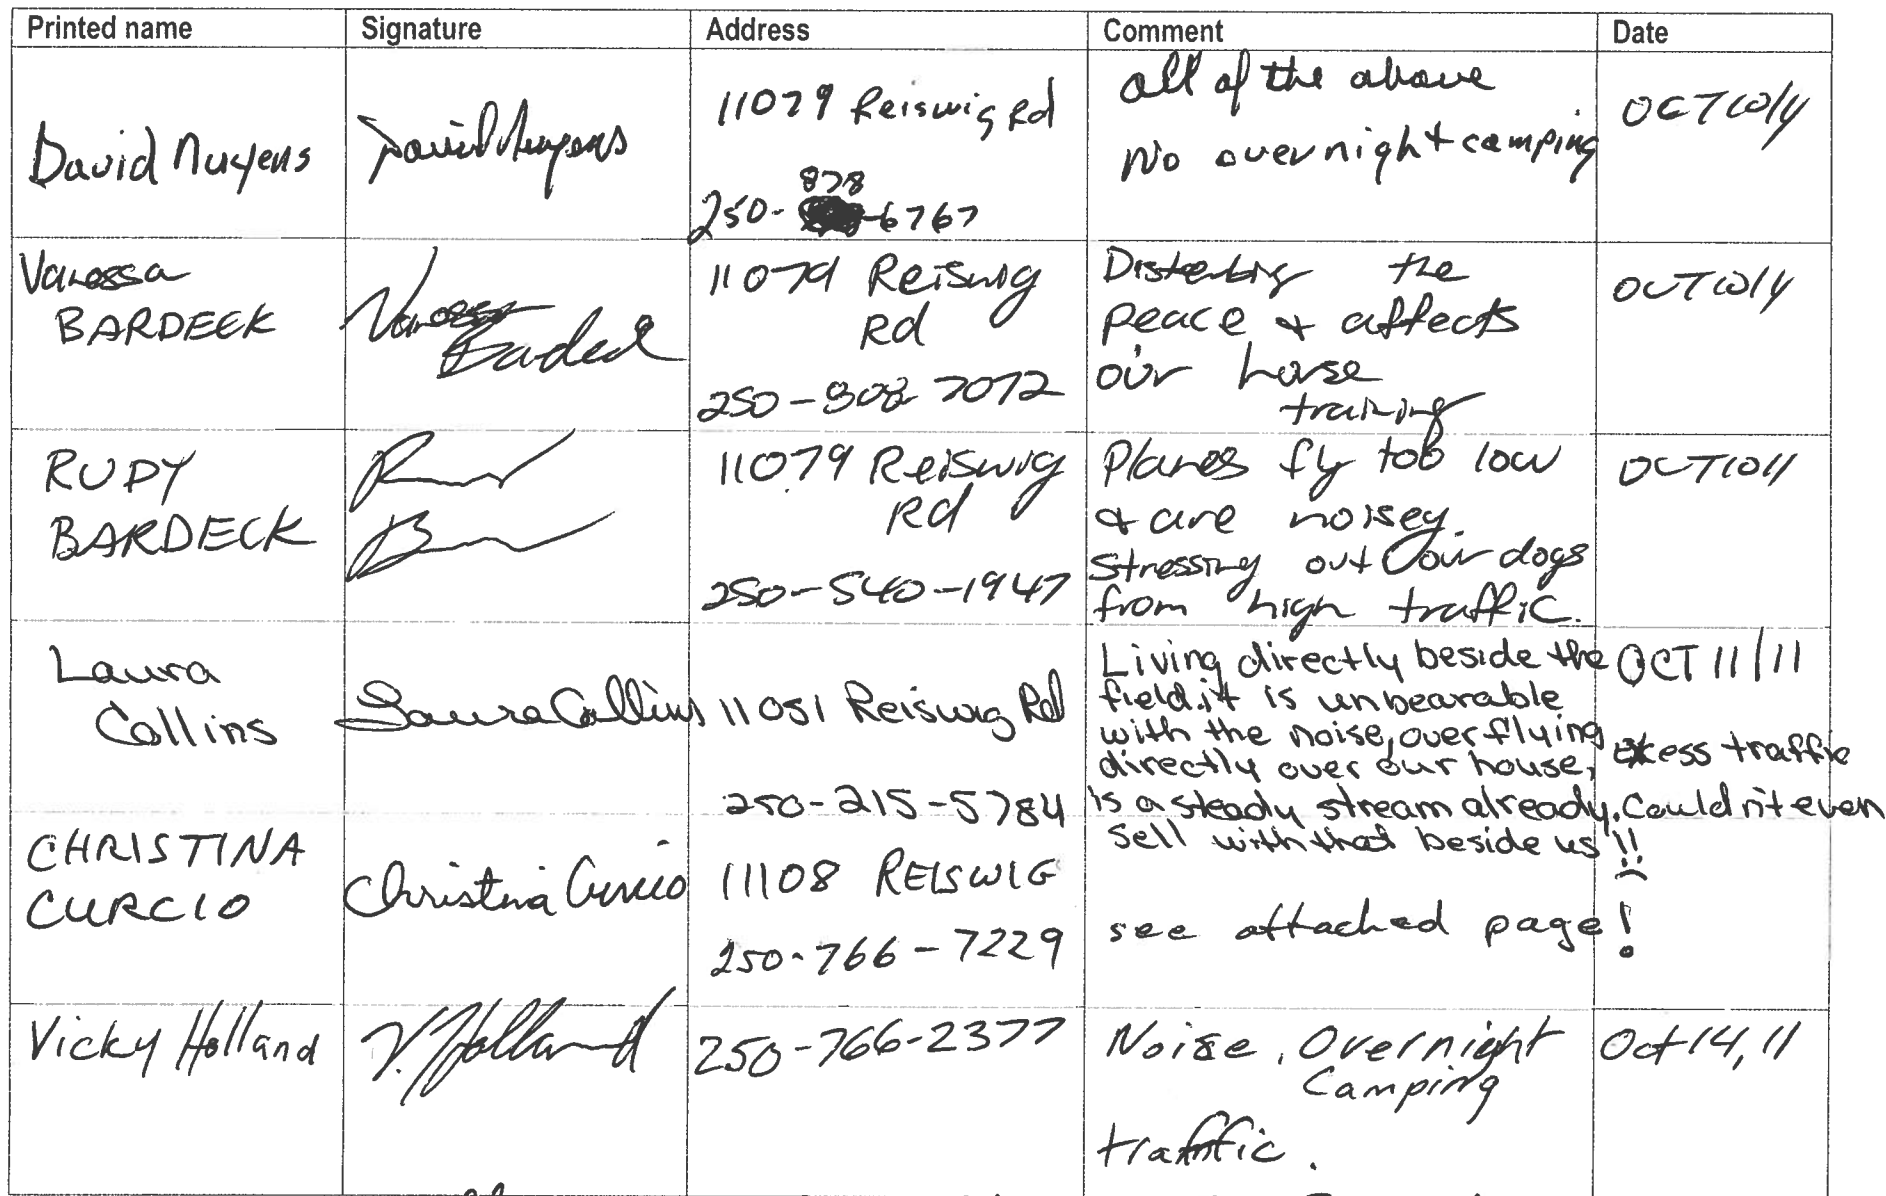 Printed name Signature Address Comment Date
David Nuyens David Nuyens 11079 Reiswig Rd all of the above
No overnight camping
250- 878 -6767
Vanessa BARDECK Vanessa Bardeck 11079 Reiswig Rd
250-808 7072
Disterbing the
peace & affects
our horse
training
RUDY BARDECK 11079 Reiswig Rd
250-540-1947
Planes fly too low
& are noisey.
stressing out our dogs
from high traffic.
OCT 10 11
Laura Collins Laura Collins 11051 Reiswig Rd
250-215-5784
Living directly beside the
field, it is unbearable
with the noise, over flying
directly over our house,
is a steady stream already. Couldn't even
sell with that beside us !!
OCT 11/11
excess traffic
CHRISTINA CURCIO Christina Curcio 11108 REISWIG
250-766-7229
see attached page!
Vicky Holland V. Holland 250-766-2377
Noise, Overnight
Camping
traffic.
Oct 14, 11